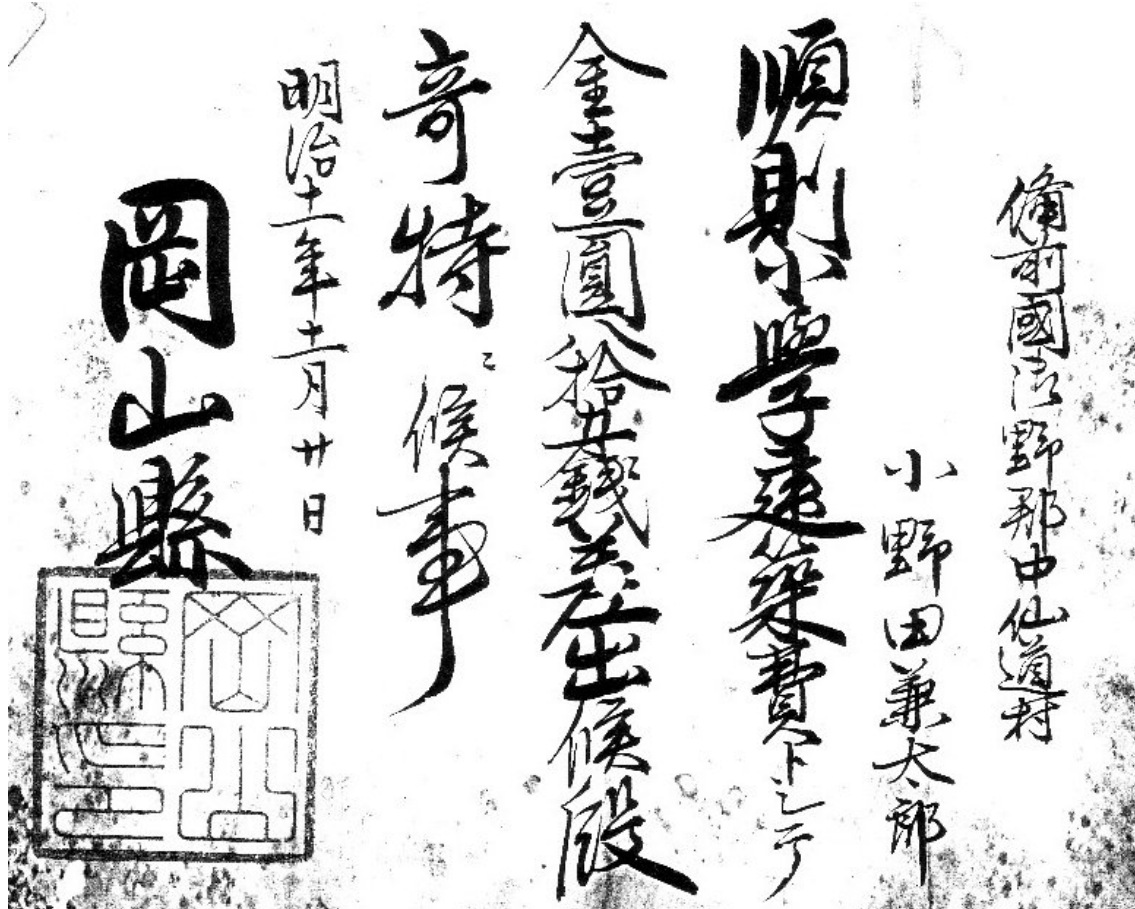 備前國御野郡中仙道村
小野田兼太郎
順則小學建築費トシテ
金壹圓拾五錢差出候段
奇特ニ候事
明治十一年十一月廿日
岡山縣
岡山縣之印